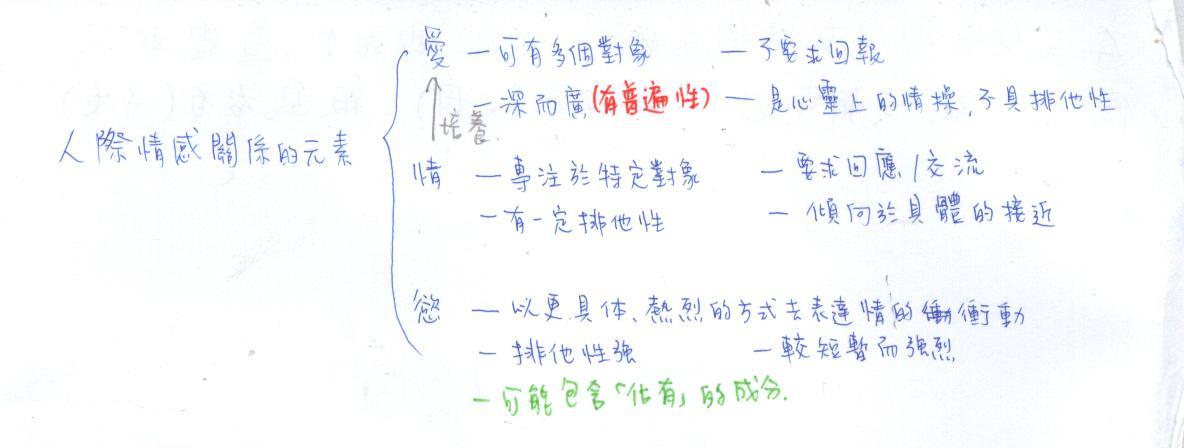 愛 — 可有多個對象 — 不要求回報
— 深而廣(有普遍性) — 是心靈上的情操,不具排他性
↑培養
人際情感關係的元素
情 — 專注於特定對象 — 要求回應/交流
— 有一定排他性 — 傾向於具體的接近
慾 — 以更具体、熱烈的方式去表達情的衝動
— 排他性強 — 較短暫而強烈
— 可能包含「佔有」的成分.